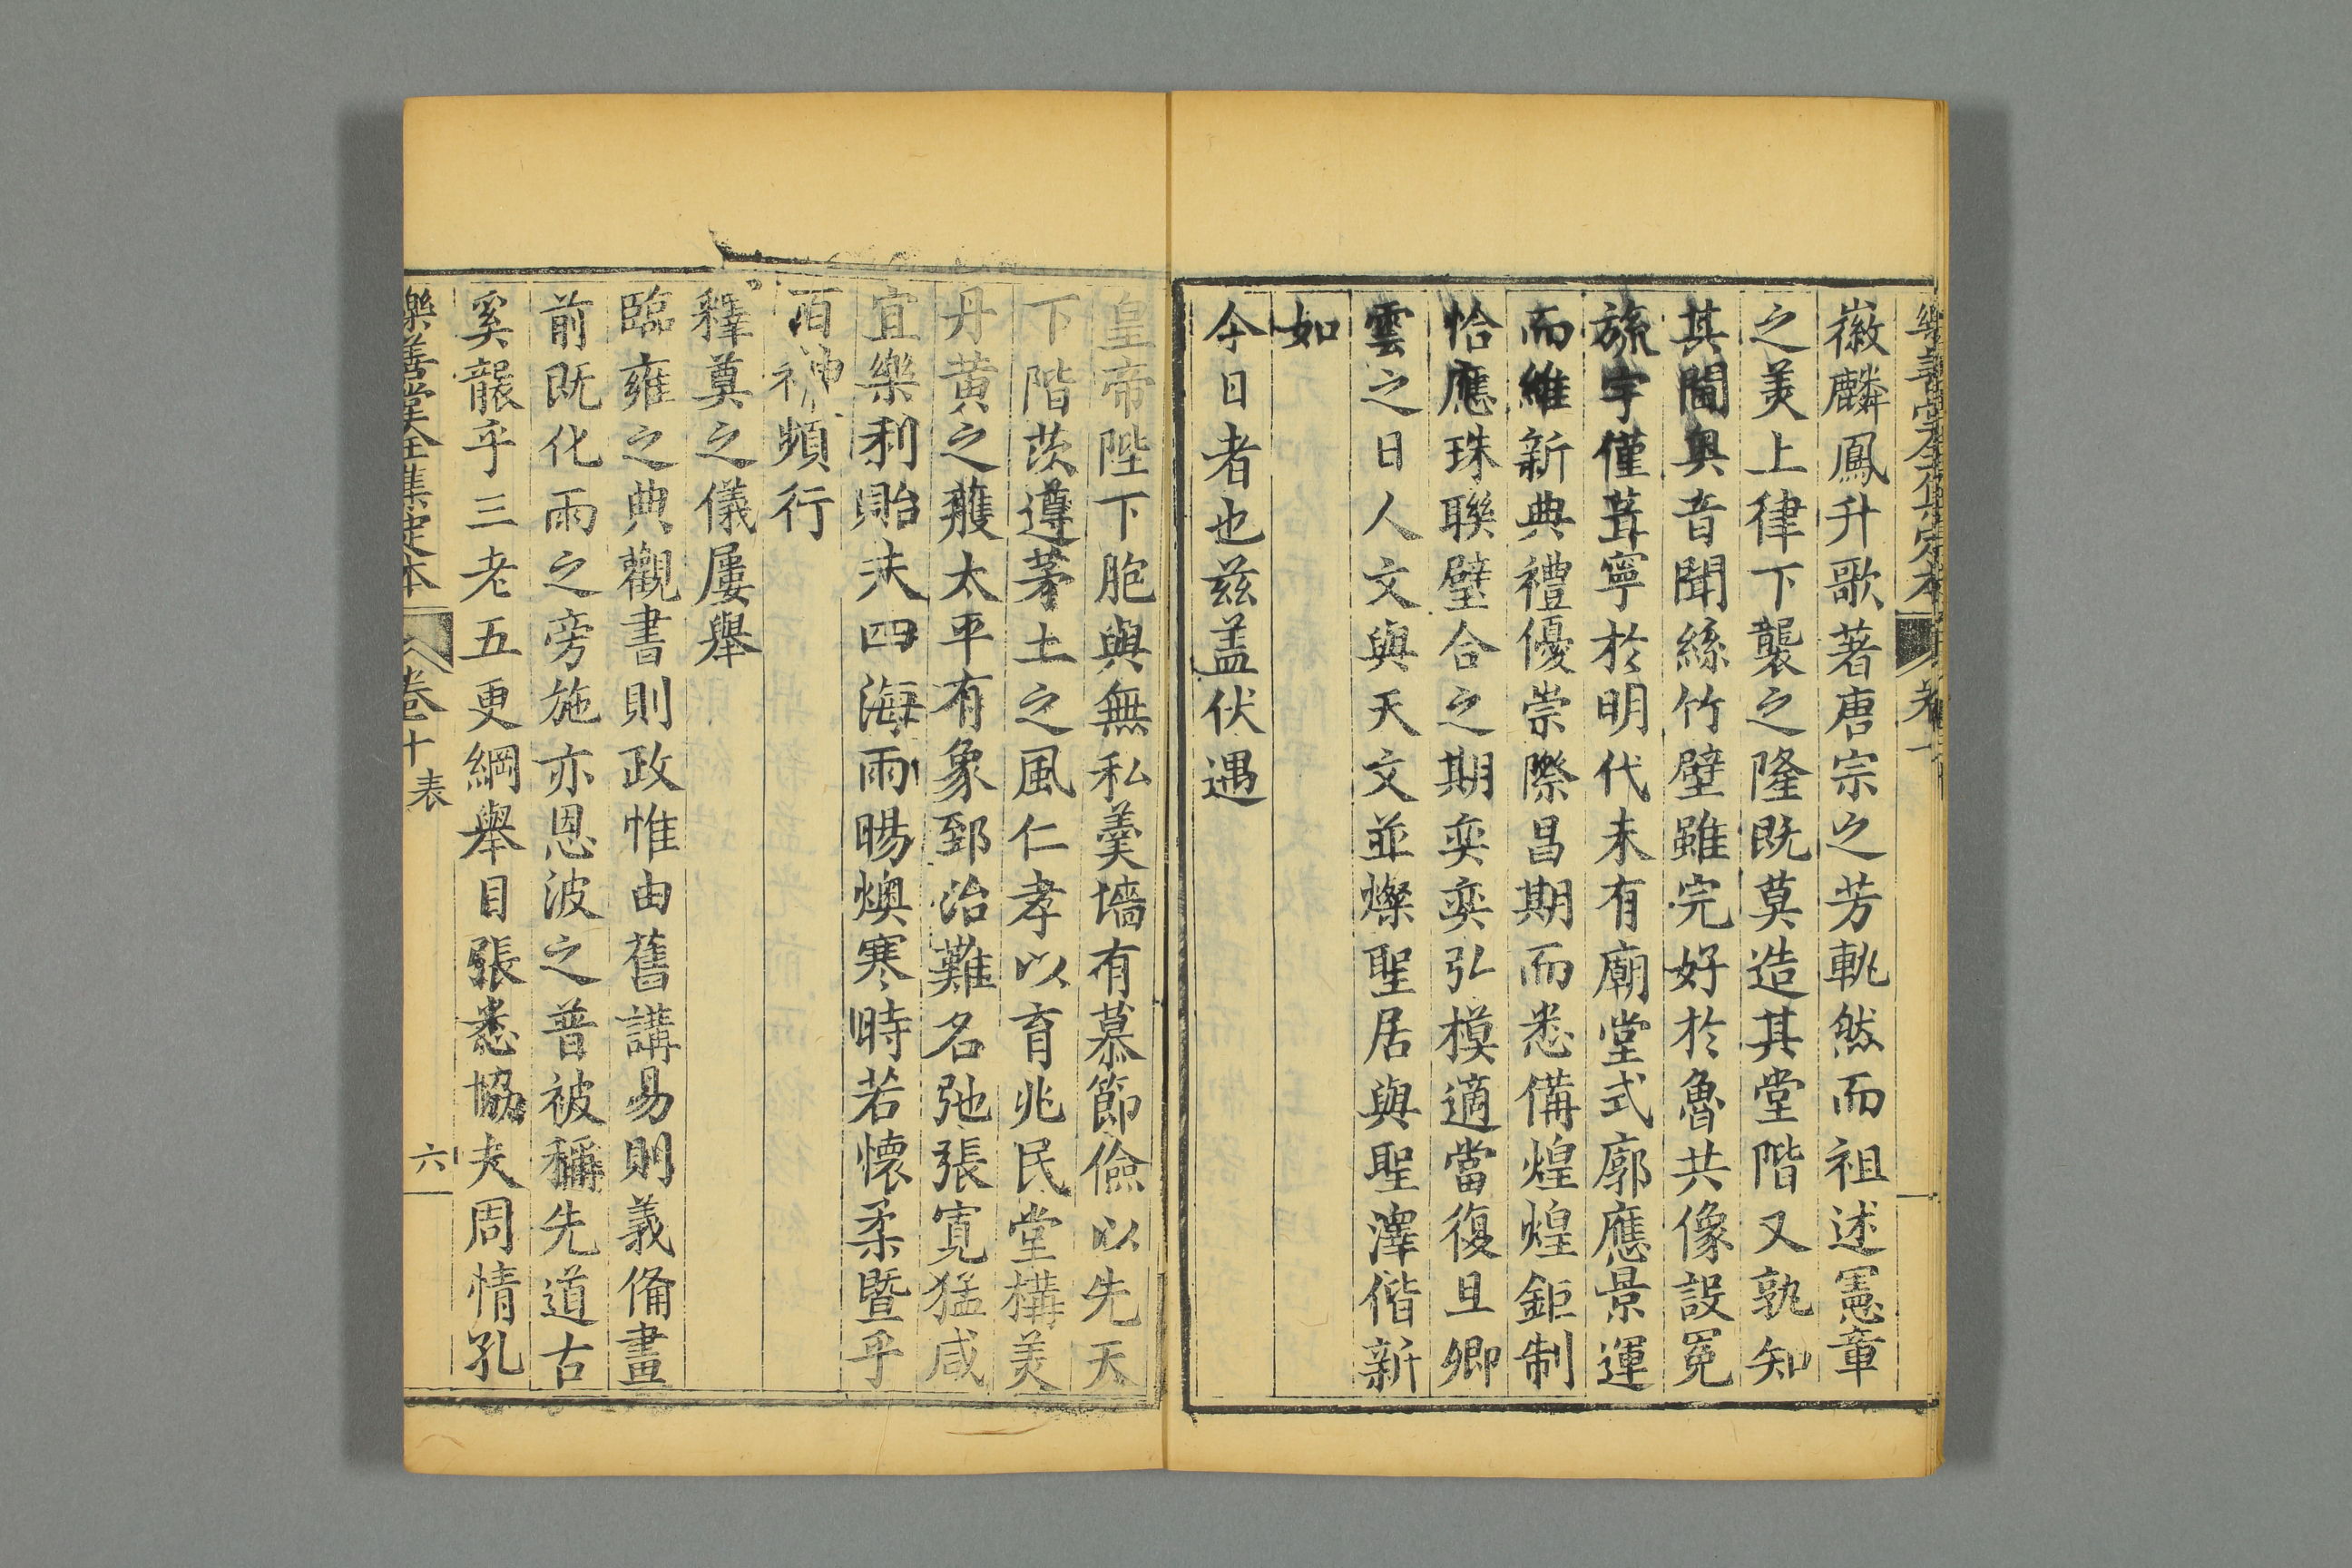 樂善堂全集定本 卷十
徽麟鳳升歌著唐宗之芳軌然而祖述憲章
之美上律下襲之隆既莫造其堂階又孰知
其閫奥音聞絲竹壁雖完好於魯共像設冕
旒宇僅葺寧於明代未有廟堂式廓應景運
而維新典禮優崇際昌期而悉備煌煌鉅制
恰應珠聯璧合之期奕奕弘模適當復旦卿
雲之日人文與天文並燦聖居與聖澤偕新
如
今日者也茲盖伏遇
皇帝陛下胞與無私羹墻有慕節儉以先天
下階茨遵茅土之風仁孝以育兆民堂構美
丹黄之雘太平有象郅治難名弛張寛猛咸
宜樂利貽夫四海雨暘燠寒時若懷柔暨乎
百神頻行
釋奠之儀屢舉
臨雍之典觀書則政惟由舊講易則義俻畫
前既化雨之旁施亦恩波之普被稱先道古
奚龂乎三老五更綱舉目張悉協夫周情孔
樂善堂全集定本 卷十 表 六